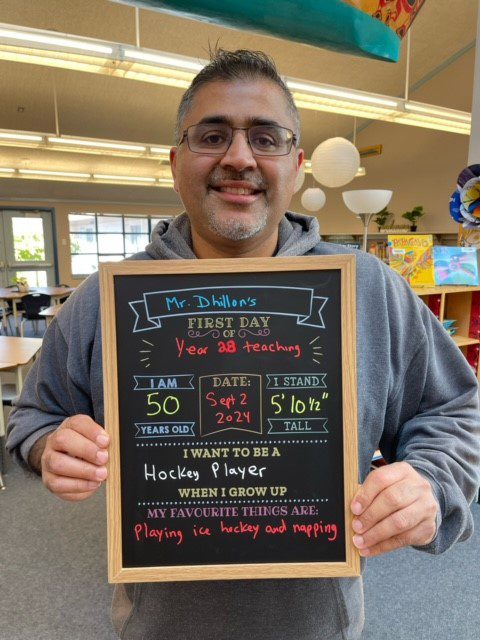 Mr. Dhillon's
FIRST DAY
OF
Year 28 teaching
I AM
50
YEARS OLD
DATE:
Sept 2
2024
I STAND
5' 10 ½"
TALL
I WANT TO BE A
Hockey Player
WHEN I GROW UP
MY FAVOURITE THINGS ARE:
Playing ice hockey and napping